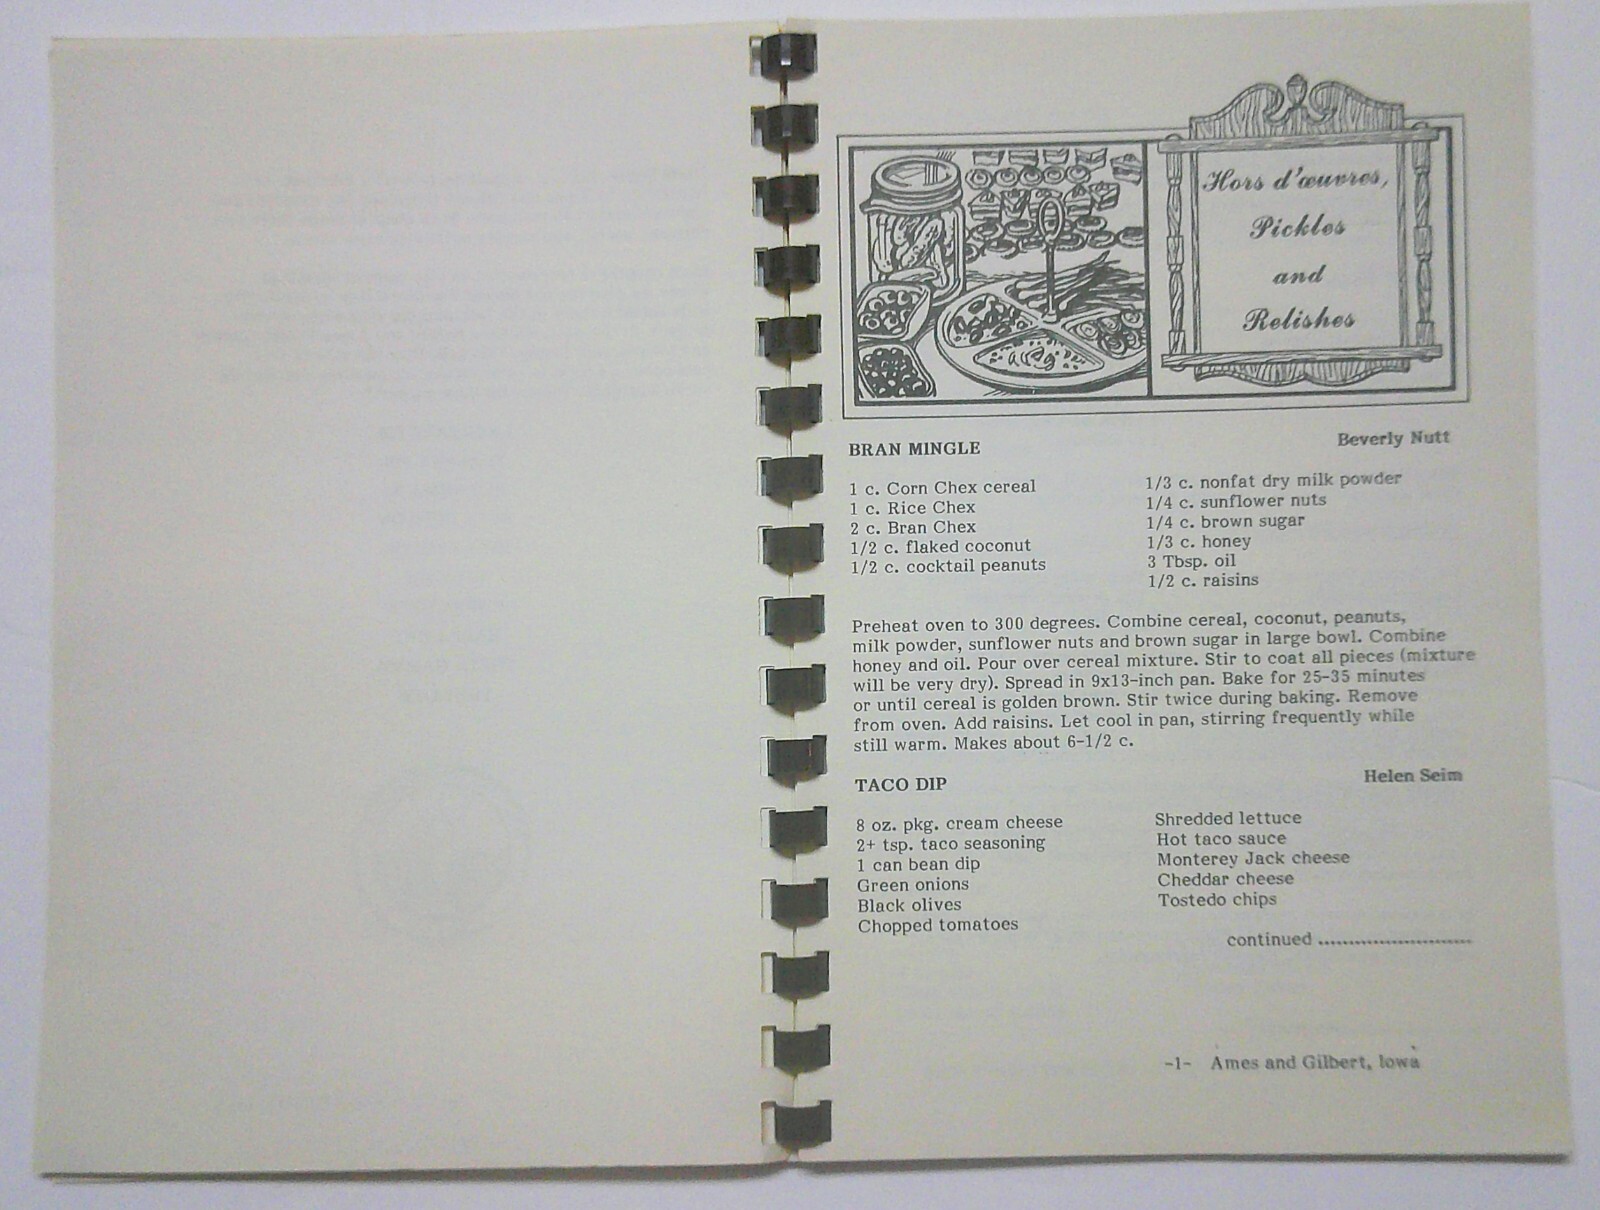 Hors d'œuvres,
Pickles
and
Relishes
BRAN MINGLE Beverly Nutt
1 c. Corn Chex cereal
1 c. Rice Chex
2 c. Bran Chex
1/2 c. flaked coconut
1/2 c. cocktail peanuts
1/3 c. nonfat dry milk powder
1/4 c. sunflower nuts
1/4 c. brown sugar
1/3 c. honey
3 Tbsp. oil
1/2 c. raisins
Preheat oven to 300 degrees. Combine cereal, coconut, peanuts,
milk powder, sunflower nuts and brown sugar in large bowl. Combine
honey and oil. Pour over cereal mixture. Stir to coat all pieces (mixture
will be very dry). Spread in 9x13-inch pan. Bake for 25-35 minutes
or until cereal is golden brown. Stir twice during baking. Remove
from oven. Add raisins. Let cool in pan, stirring frequently while
still warm. Makes about 6-1/2 c.
TACO DIP Helen Seim
8 oz. pkg. cream cheese
2+ tsp. taco seasoning
1 can bean dip
Green onions
Black olives
Chopped tomatoes
Shredded lettuce
Hot taco sauce
Monterey Jack cheese
Cheddar cheese
Tostedo chips
continued .........................
-1- Ames and Gilbert, Iowa